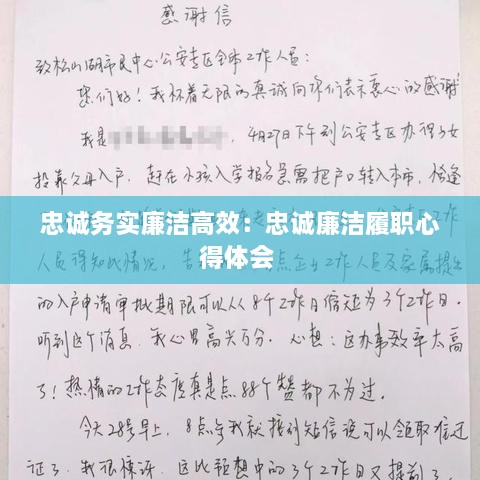 感谢信
致松山湖市民中心公安专区全体工作人员：
您们好！我怀着无限的真诚向你们表示衷心的感谢
我是 ，4月27日下午到公安专区办理子女
投靠父母入户，赶在小孩入学报名急需把户口转入本市，恰逢
忠诚务实廉洁高效：忠诚廉洁履职心
得体会
人员得知此情况，告 点企业工作人员及家属提出
的入户申请审批期限可以从8个工作日缩短为3个工作日。
听到这个消息，我心里高兴万分。心想：这办事效率太高
了！热情的工作态度真是点88个赞都不为过。
今天28号早上，8点多我就接到短信说可以领取准迁
证了，我很惊讶，这比预想中的3个工作日又提前了